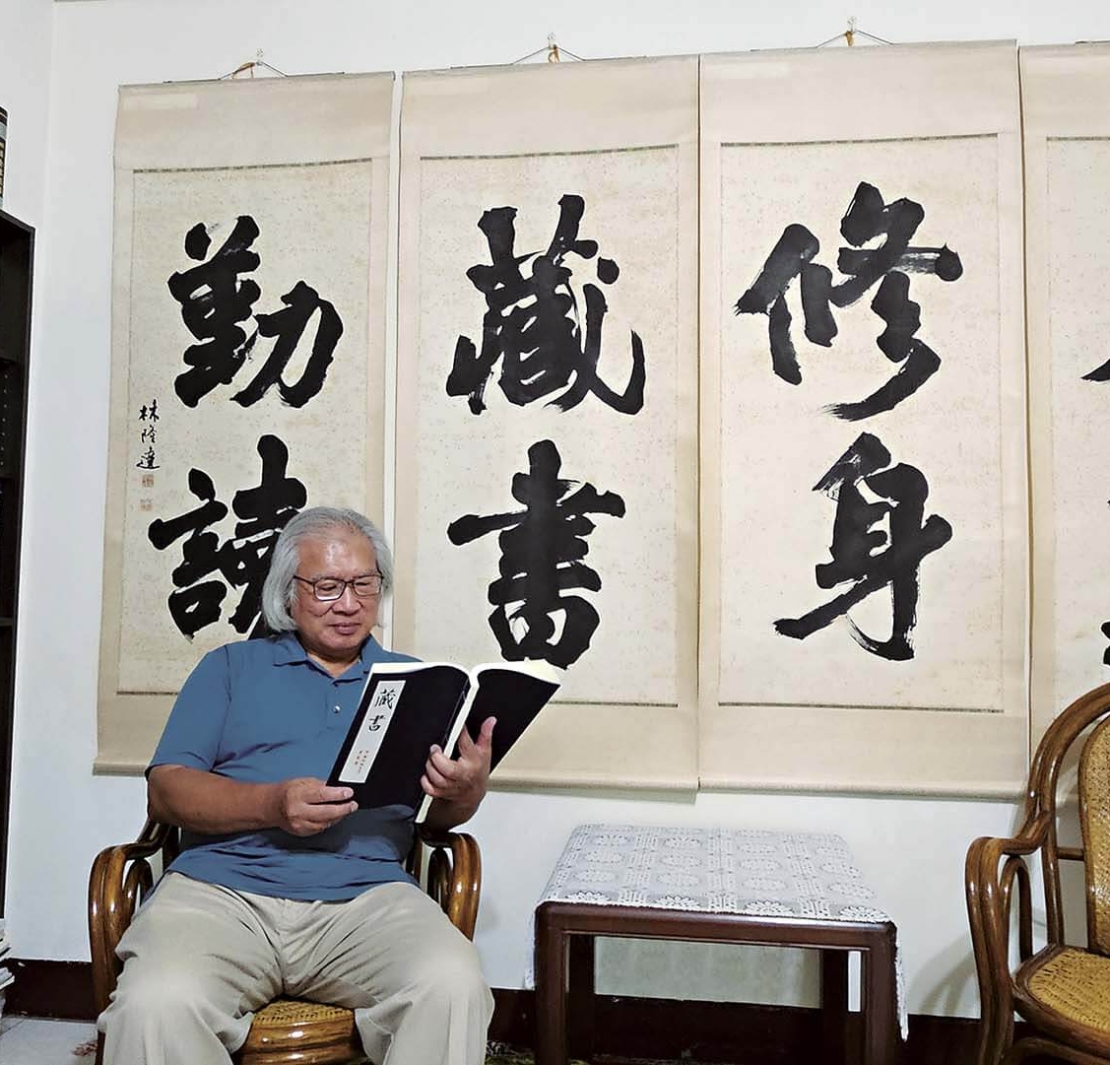 修身
藏書
勤讀
林隆達
藏書